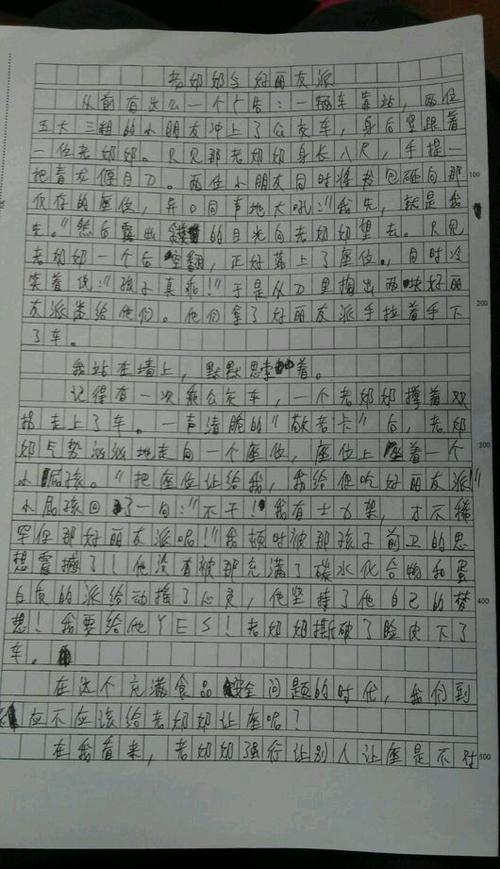 老奶奶与好丽友派
从前有这么一个广告：一辆车靠站，两位
五大三粗的小朋友冲上了公交车，身后紧跟着
一位老奶奶。只见那老奶奶身长八尺，手提一
把青龙偃月刀。两位小朋友同时将书包砸向那
仅存的座位，异口同声地大吼："我先，就是我
先。"然后露出的目光向老奶奶望去。只见
老奶奶一个后空翻，正好落上了座位。，同时冷
笑着说："孩子真乖！"于是从刀里掏出两块好丽
友派卖给他们。他们拿了好丽友派手拉着手下
了车。
我站在墙上，默默思考着。
记得有一次乘公交车，一个老奶奶撑着双
拐走上了车。一声清脆的"敬老卡"后，老奶
奶气势汹汹地走向一个座位，座位上坐着一个
小屁孩。"把座位让给我，我给你吃好丽友派"
小屁孩回了一句："不干！我有士力架，才不稀
罕你那好丽友派呢！"我顿时被那孩子前卫的思
想震撼了！他没有被那充满了碳水化合物和蛋
白质的派给动摇了心灵，他坚持了他自己的梦
想！我要给他YES！老奶奶撕破了脸皮下了
车。
在这个充满食品安全问题的时代，我们到
底应不应该给老奶奶让座呢？
在我看来，老奶奶强行让别人让座是不对
100
200
300
400
500